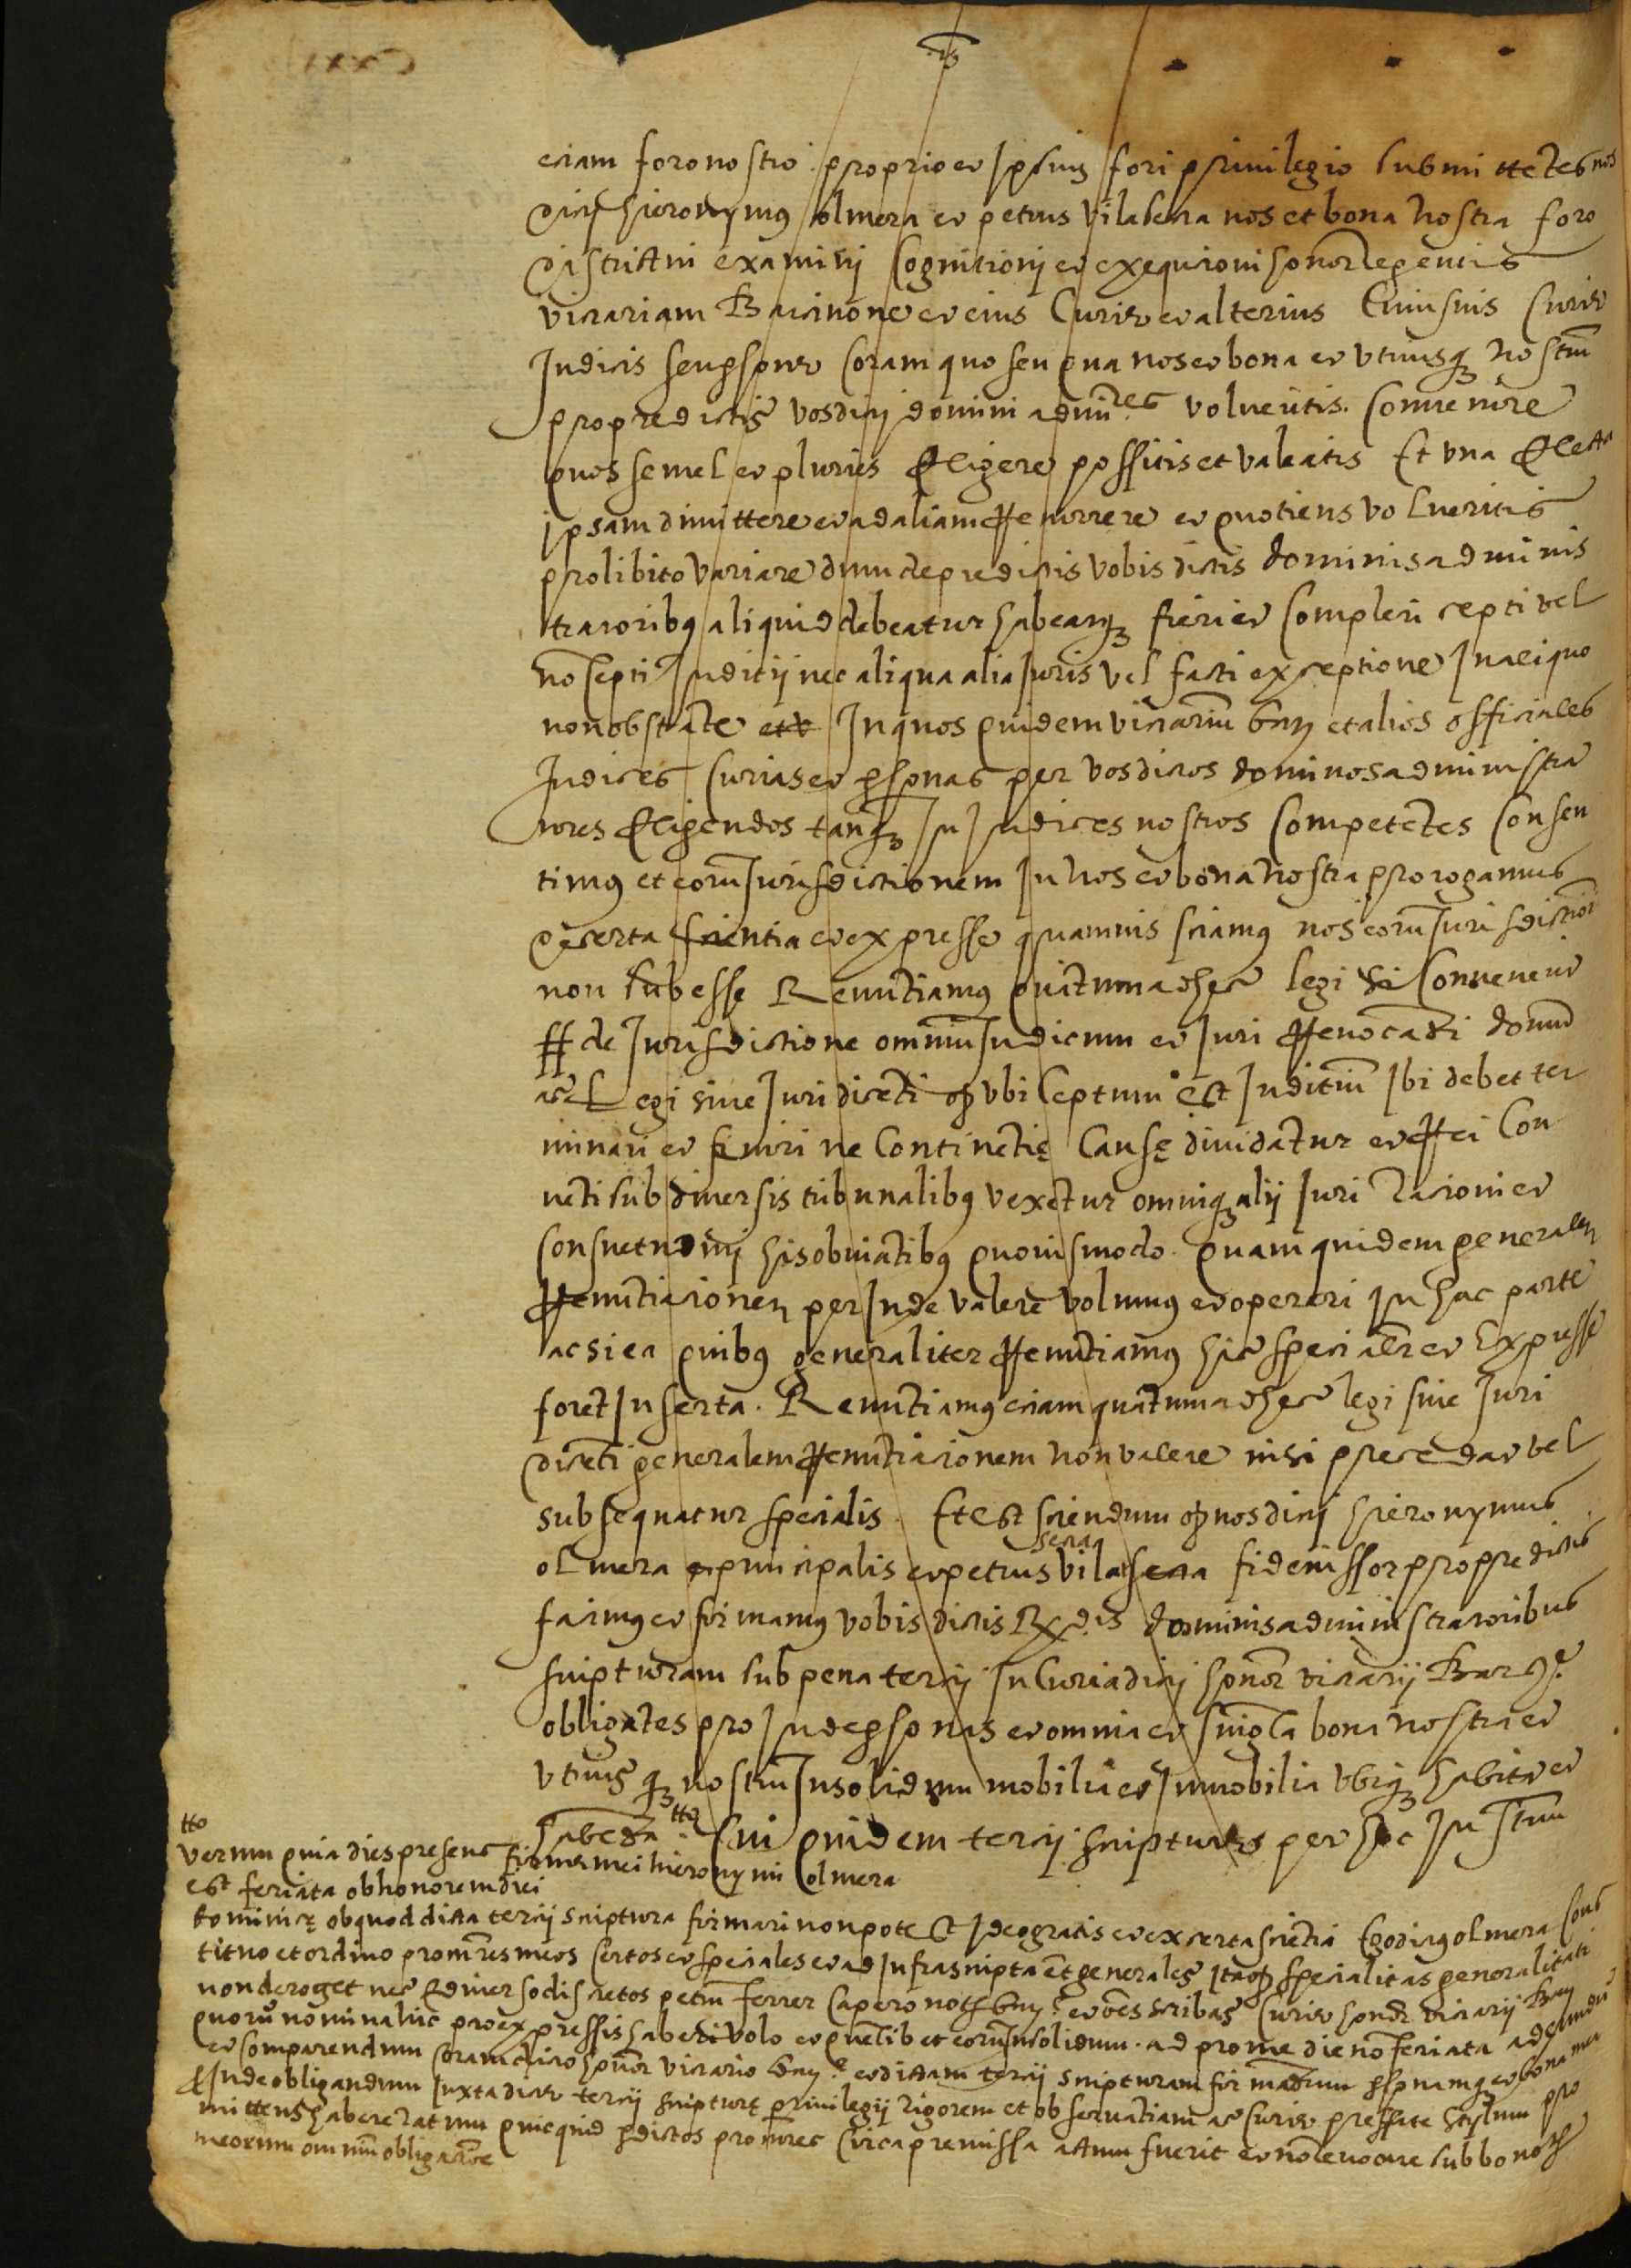 eciam foro nostro proprio et Ipsius fori privilegio submittẽtes nos
dicti hieronymus olmera et petrus vilasena nos et bona nostra foro
districtui examini Cognitioni et exequtioni honor regentis
vicariam Barcinone et eius Curie et alterius Cuiusuis Curie
Judicis seu psone Coram quo seu qua nos et bona et vtriusq nostrũ
pro predictis vos dicti domini admĩres volueritis Conuenire
quos semel et pluries eligere possitis et valeatis Et vna electa
ipsam dimittere et ad aliam Recurrere et quotiens volueritis
pro libito variare dum de predictis vobis dictis dominis adminis
tratoribus aliquid debeatur habeatq fieri et Compleri cepti vel
nõ cepti Judicij nec aliqua alia Juris vel facti exceptione In aliquo
non obstãte In quos quidem vicariũ et alios officiales
Judices Curias et psonas per vos dictos dominos administra
tores eligendos tanq In Judices nostros Competẽtes Consen
timus et eorũ Jurisdictionem In nos et bona nostra prorogamus
de certa scientia et expresse quamuis sciamus nos eorũ Jurisdictioni
non subesse Renũtiamus quãtum ad hec legi si Conuenerit
ff de Jurisdictione omniũ Judicum et Juri Reuocãdi domũ
ac Legi siue Juri dicẽti q vbi Ceptum est Juditiũ Ibi debet ter
minari et finiri ne Continẽtię Causę diuidãtur et Rei Con
uẽti sub diuersis tribunalibus vexẽtur omniq alij Juri Racioni et
consuetudini his obuiãtibus quouismodo. quam quidem generalem
Renũtiationem perInde valere volumus et operari In hac parte
ac si ea quibus generaliter Renũtiamus hic specialr et Expresse
forẽt Inserta. Renũtiamus eciam quãtum ad hec legi siue Juri
dicẽti generalem Renũtiationem non valere nisi precedat vel
subsequatur specialis. Et est sciendum q nos dicti hieronymus
olmera principalis et petrus vilasena fideiussor pro predictis
facimus et firmamus vobis dictis Rxdis dominis administratoribus
scripturam sub pena tercij In Curia dicti honor vicarij Barne
obligãtes pro Inde psonas et omnia et singla bona nostra et
vtriusq nostrũ Insolidum mobilia et Inmobilia vbiq habita et
habẽda tto Cui quidem tercij scripture per hoc Instrum
tto
verum quia dies presens firme mei hieronymi Colmera
est feriata ob honorem diei
dominicę ob quod dicta tercij scriptura firmari non potest Ideo gratis et ex certa scientia Ego dictus olmera cons
tituo et ordino promres meos certos et speciales et ad Infrascripta et generales Ita q specialitas generalitati
non deroget nec e diuerso discretos petrũ ferrer Capero noth et oes scribas Curie honor vicarij Bar
quorũ nomina hic pro expressis haberi volo et quẽlibet eorũ Insolidum. ad pro me die nõ feriata adeundũ
et comparendum Coram dicto honor vicario et dictam tercij scripturam firmãdum psonamq et bona mea
pInde obligandum Juxta dicte tercij scripturę priuilegij Rigorem et obseruãtiam ac Curie prefate stylum pro
mittens habere ratum quicquid p dictos promres Circa premissa actum fuerit et nõ reuocare sub bonorum
meorum omniũ obligatione